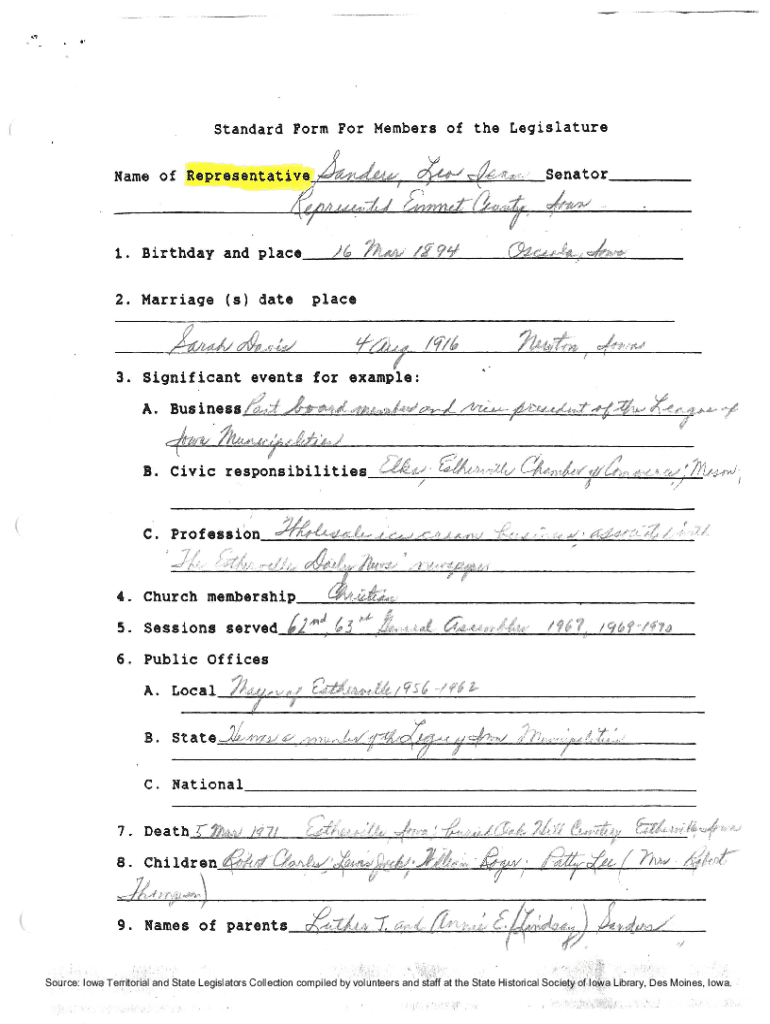 Standard Form For Members of the Legislature
Name of Representative Sanders, Leo Senator
Represented Emmet County, Iowa
1. Birthday and place 16 Mar 1894 Osceola, Iowa
2. Marriage (s) date place
Sarah Davis 4 Aug 1916 Newton, Iowa
3. Significant events for example:
A. Business Past board member and vice president of the League of
Iowa Municipalities
B. Civic responsibilities Elks; Estherville Chamber of Commerce; Mason;
C. Profession Wholesale ice cream business; associated with
"The Estherville Daily News" newspaper
4. Church membership Christian
5. Sessions served 62nd, 63rd General Assemblies 1967, 1969-1970
6. Public Offices
A. Local Mayor of Estherville 1956-1962
B. State He was a member of the League of Iowa Municipalities
C. National
7. Death 5 Mar 1971 Estherville, Iowa; buried Oak Hill Cemetery Estherville, Iowa
8. Children Robert Charles; Lewis Jack; William Roger; Patty Lee (Mrs. Robert
Thompson)
9. Names of parents Luther T. and Annie E. (Lindsay) Sanders
Source: Iowa Territorial and State Legislators Collection compiled by volunteers and staff at the State Historical Society of Iowa Library, Des Moines, Iowa.